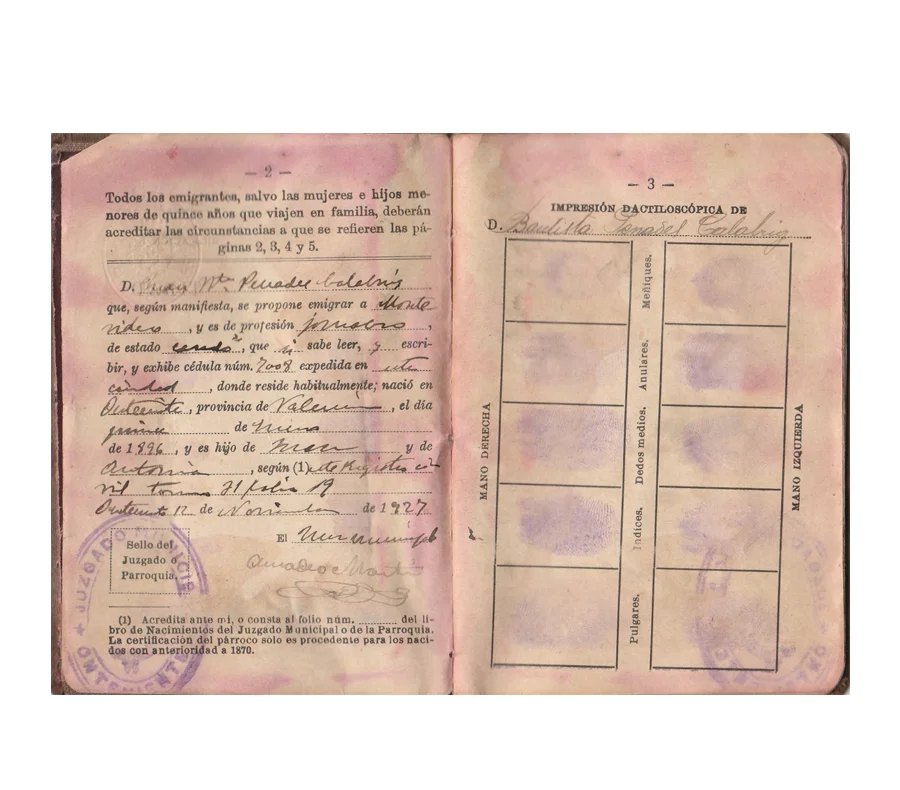 — 2 —
Todos los emigrantes, salvo las mujeres e hijos me-
nores de quince años que viajen en familia, deberán
acreditar las circunstancias a que se refieren las pá-
ginas 2, 3, 4 y 5.
D. Juan Mª Penades Calabuig
que, según manifiesta, se propone emigrar a Monte
video, y es de profesión jornalero,
de estado casado, que si sabe leer, y escri-
bir, y exhibe cédula núm. 7008 expedida en esta
ciudad, donde reside habitualmente; nació en
Onteniente, provincia de Valencia, el día
quince de
de 1896, y es hijo de y de
Antonia, según (1) de Registro ci
vil tomo 31 folio 19
Onteniente 12 de Noviembre de 1927
El Juez municipal
Amadeo
Sello del
Juzgado o
Parroquia.
JUZGADO MUNICIPAL
ONTENIENTE
(1) Acredita ante mi, o consta al folio núm. del li-
bro de Nacimientos del Juzgado Municipal o de la Parroquia.
La certificación del párroco solo es procedente para los naci-
dos con anterioridad a 1870.
— 3 —
IMPRESIÓN DACTILOSCÓPICA DE
D. Bautista Calabuig
MANO DERECHA
Meñiques.
Anulares.
Dedos medios.
Indices.
Pulgares.
MANO IZQUIERDA